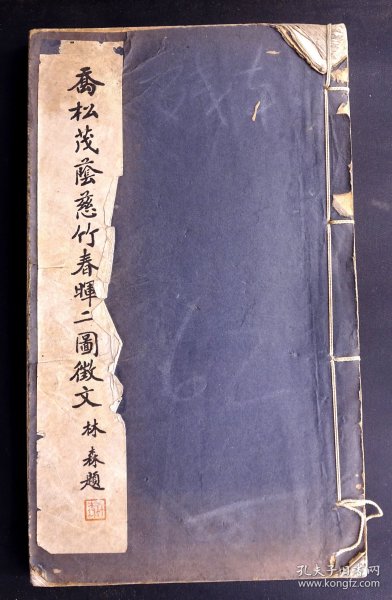 喬松茂蔭慈竹春暉二圖徵文
林森題
孔夫子旧书网
www.kongfz.com